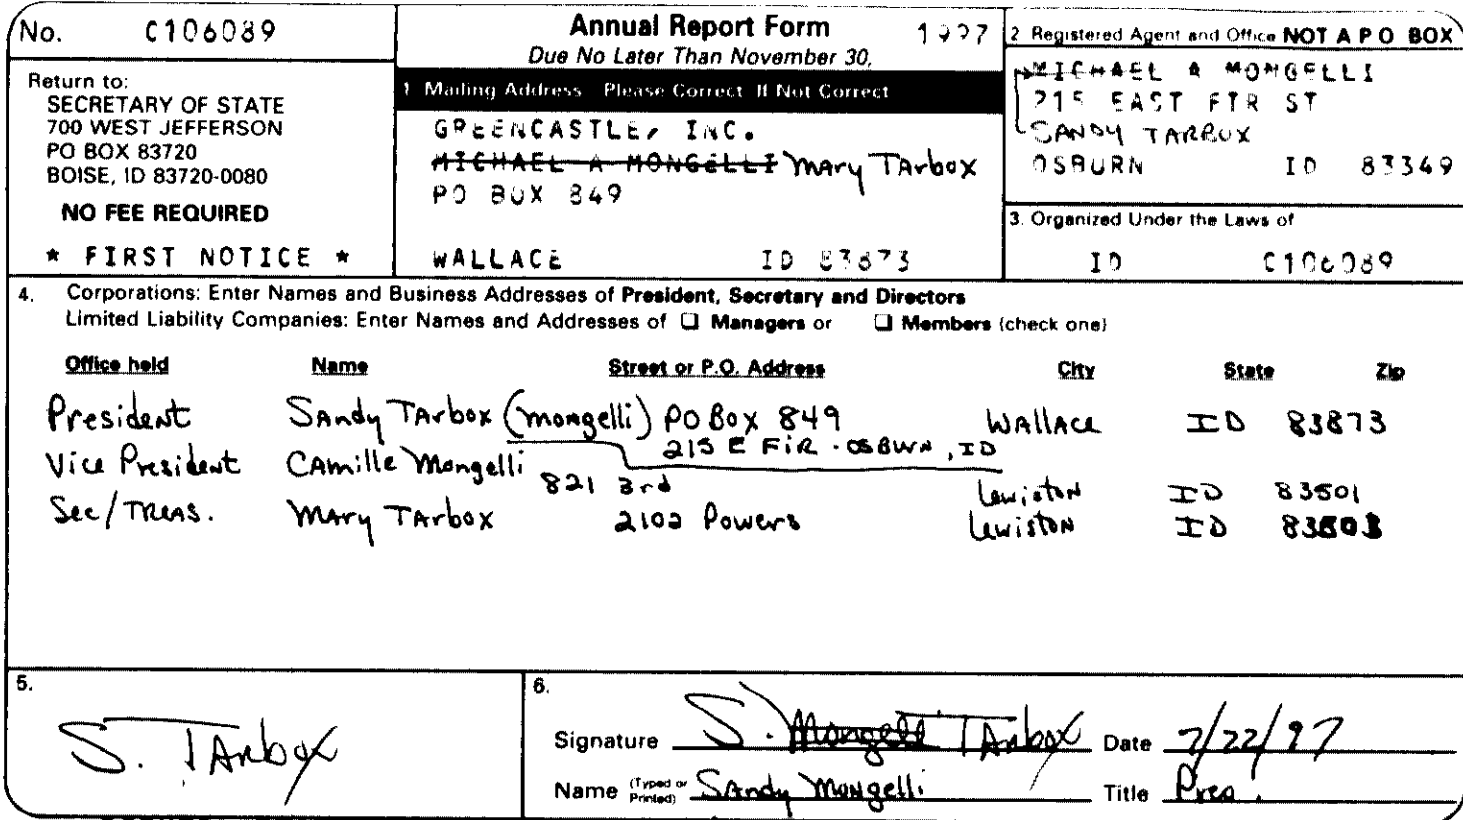 No. C106089
Return to:
SECRETARY OF STATE
700 WEST JEFFERSON
PO BOX 83720
BOISE, ID 83720-0080
NO FEE REQUIRED
* FIRST NOTICE *
Annual Report Form 1997
Due No Later Than November 30,
1 Mailing Address Please Correct If Not Correct
GREENCASTLE, INC.
MICHAEL A MONGELLI Mary TArbox
PO BOX 849
WALLACE ID 83873
2 Registered Agent and Office NOT A P O BOX
MICHAEL A MONGELLI
215 EAST FIR ST
SANDY TARBOX
OSBURN ID 83349
3. Organized Under the Laws of
ID C106089
4. Corporations: Enter Names and Business Addresses of President, Secretary and Directors
Limited Liability Companies: Enter Names and Addresses of ❑ Managers or ❑ Members (check one)
Office held Name Street or P.O. Address City State Zip
President SANdy TArbox (mongelli) PO Box 849 WALLAce ID 83873
215 E FiR - OSBWN, ID
Vice President CAmille Mongelli 821 3rd Lewiston ID 83501
Sec/TREAS. MAry TArbox 2102 Powers Lewiston ID
5.
S. TArbox
6.
Signature S. Mongelli TArbox Date 7/22/97
Name (Typed or Printed) SAndy Mongelli Title Pres.